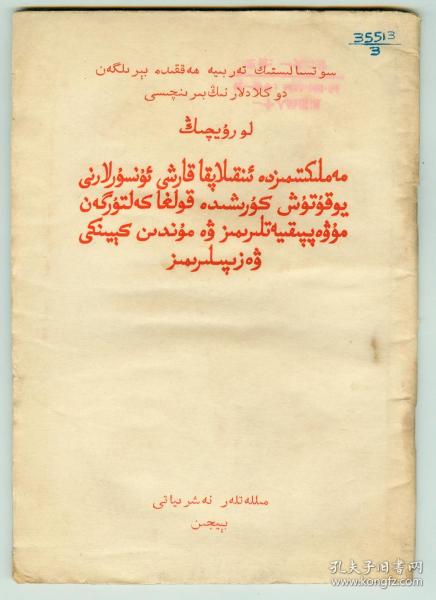 35513
3
سوتسىيالىستىك تەربىيە ھەققىدە بېرىلگەن
دوكلادلارنىڭ بىرىنچىسى
لورۇيچىڭ
مەملىكىتىمىزدە ئىنقىلاپقا قارشى ئۇنسۇرلارنى
يوقۇتۇش كۈرىشىدە قولغا كەلتۈرگەن
مۇۋەپپىقىيەتلىرىمىز ۋە مۇندىن كېيىنكى
ۋەزىپىلىرىمىز
مىللەتلەر نەشرىياتى
بېيجىن
孔夫子旧书网
www.kongfz.com